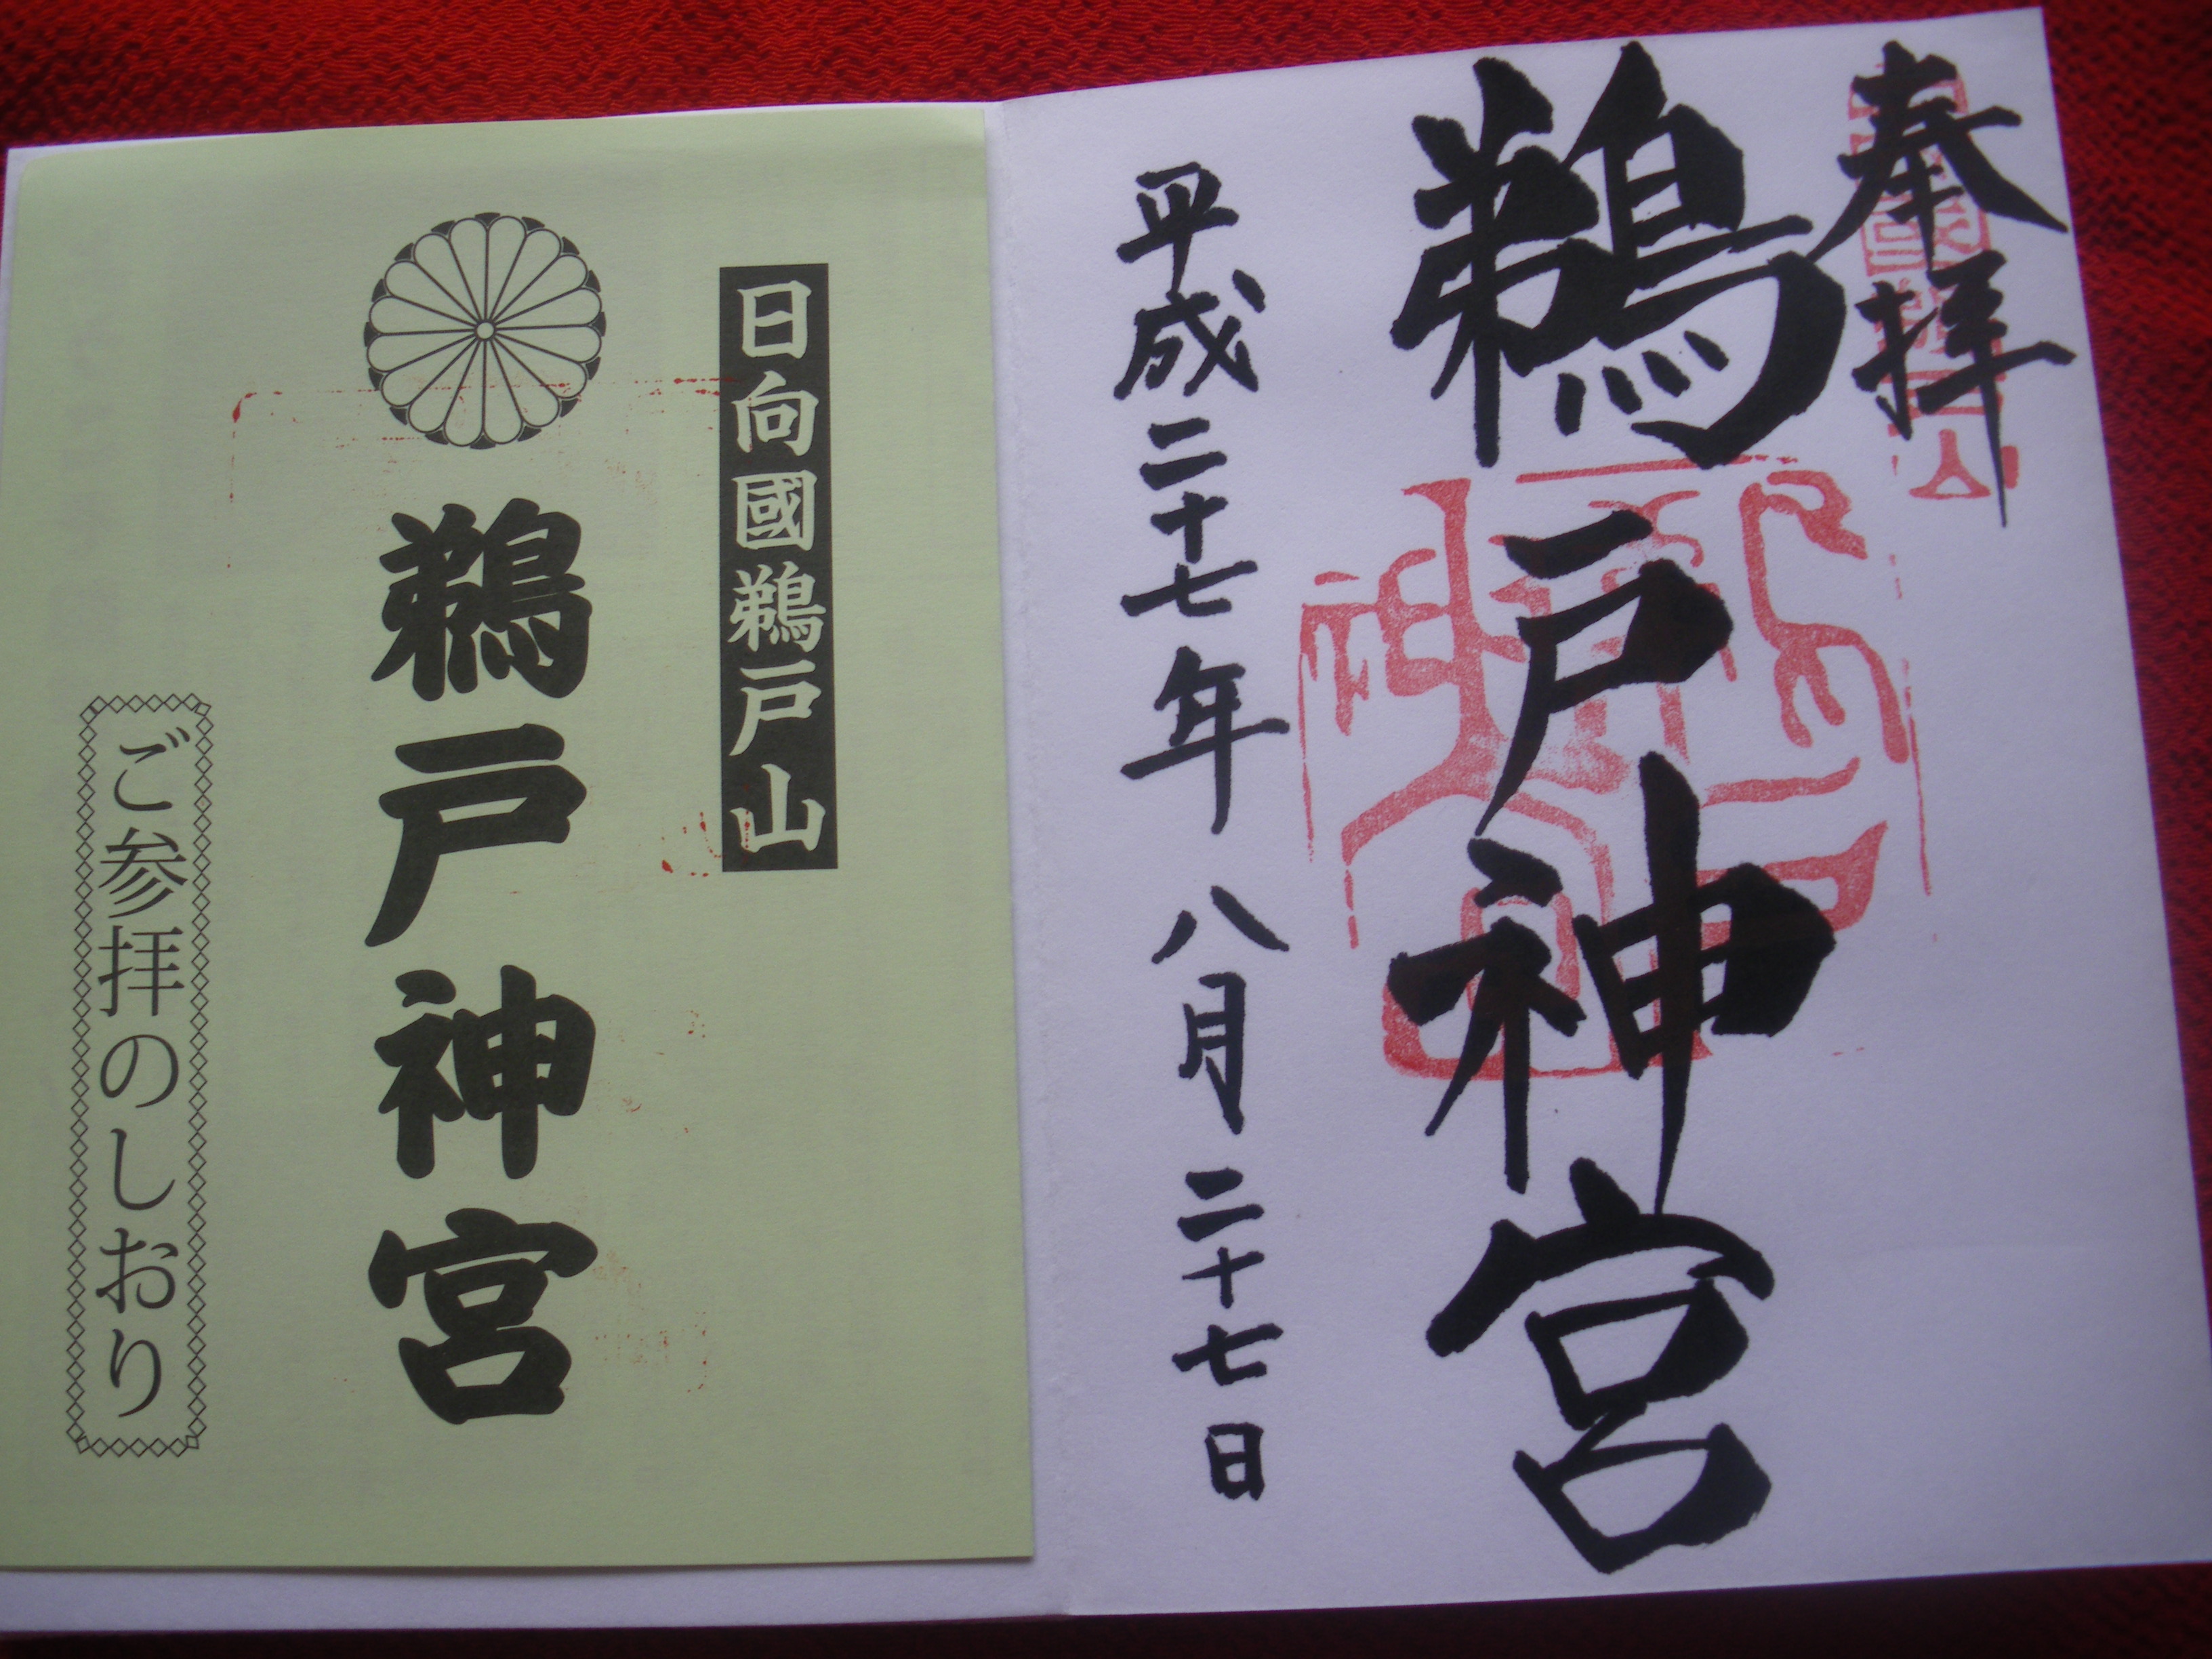 奉拝
鵜戸神宮
平成二十七年 八月 二十七日
日向國鵜戸山
鵜戸神宮
ご参拝のしおり